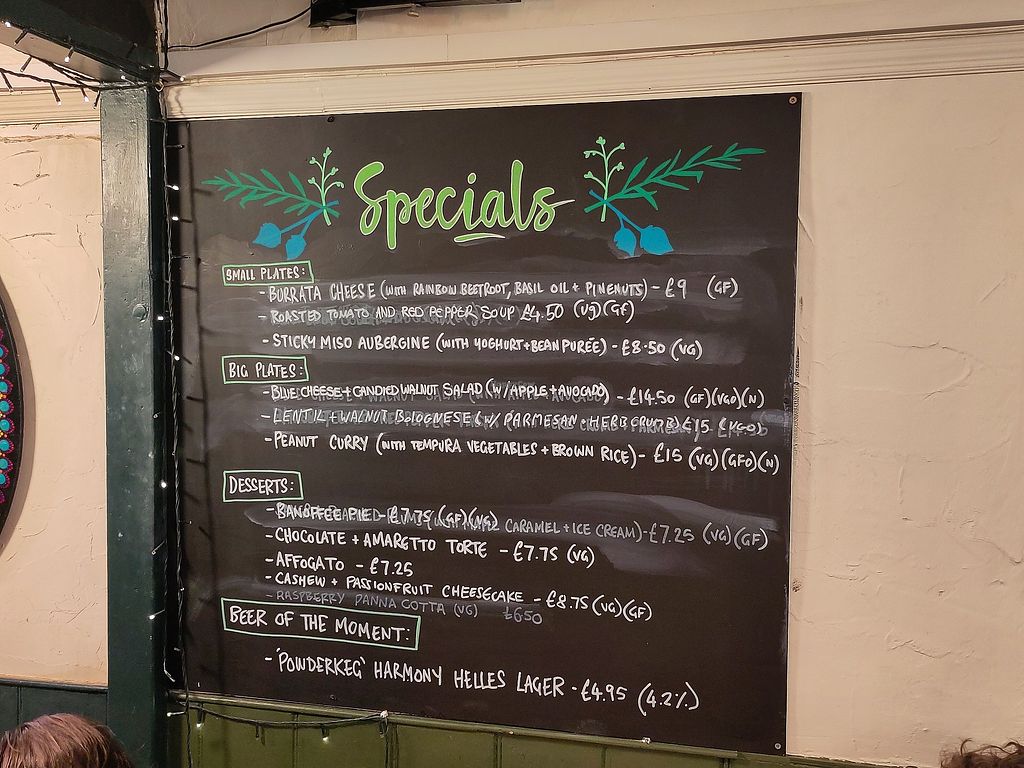 Specials
SMALL PLATES:
- BURRATA CHEESE (WITH RAINBOW BEETROOT, BASIL OIL + PINENUTS) - £9 (GF)
- ROASTED TOMATO AND RED PEPPER SOUP £4.50 (VG)(GF)
- STICKY MISO AUBERGINE (WITH YOGHURT + BEAN PURÉE) - £8.50 (VG)
BIG PLATES:
- BLUE CHEESE + CANDIED WALNUT SALAD (W/ APPLE + AVOCADO) - £14.50 (GF)(VGO)(N)
- LENTIL + WALNUT BOLOGNESE (W/ PARMESAN + HERB CRUMB) £15 (VGO)
- PEANUT CURRY (WITH TEMPURA VEGETABLES + BROWN RICE) - £15 (VG)(GFO)(N)
DESSERTS:
- BANOFFEE PIE - £7.75 (GF)(VG)
CARAMEL + ICE CREAM) - £7.25 (VG)(GF)
- CHOCOLATE + AMARETTO TORTE - £7.75 (VG)
- AFFOGATO - £7.25
- CASHEW + PASSIONFRUIT CHEESECAKE - £8.75 (VG)(GF)
- RASPBERRY PANNA COTTA (VG) £6.50
BEER OF THE MOMENT:
- 'POWDERKEG' HARMONY HELLES LAGER - £4.95 (4.2%)